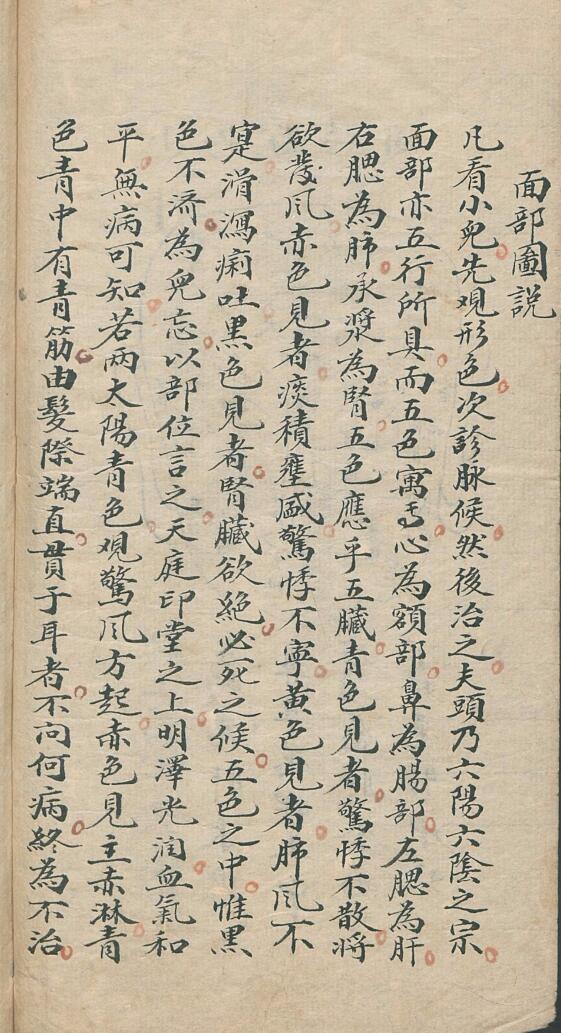 面部圖説
凡看小兒先观形色次診脉候然後治之夫頭乃六陽六陰之宗
面部亦五行所具而五色寓焉心為額部鼻為腸部左腮為肝
右腮為肺承漿為腎五色應乎五臟青色見者驚悸不散將
欲發风赤色見者痰積壅盛驚悸不寧黃色見者肺风不
寔滑瀉痢吐黑色見者腎臟欲絕必死之候五色之中惟黑
色不济為兒忘以部位言之天庭印堂之上明澤光润血氣和
平無病可知若兩大陽青色观驚风方起赤色見主赤淋青
色青中有青筋由髮際端直貫于耳者不问何病終為不治